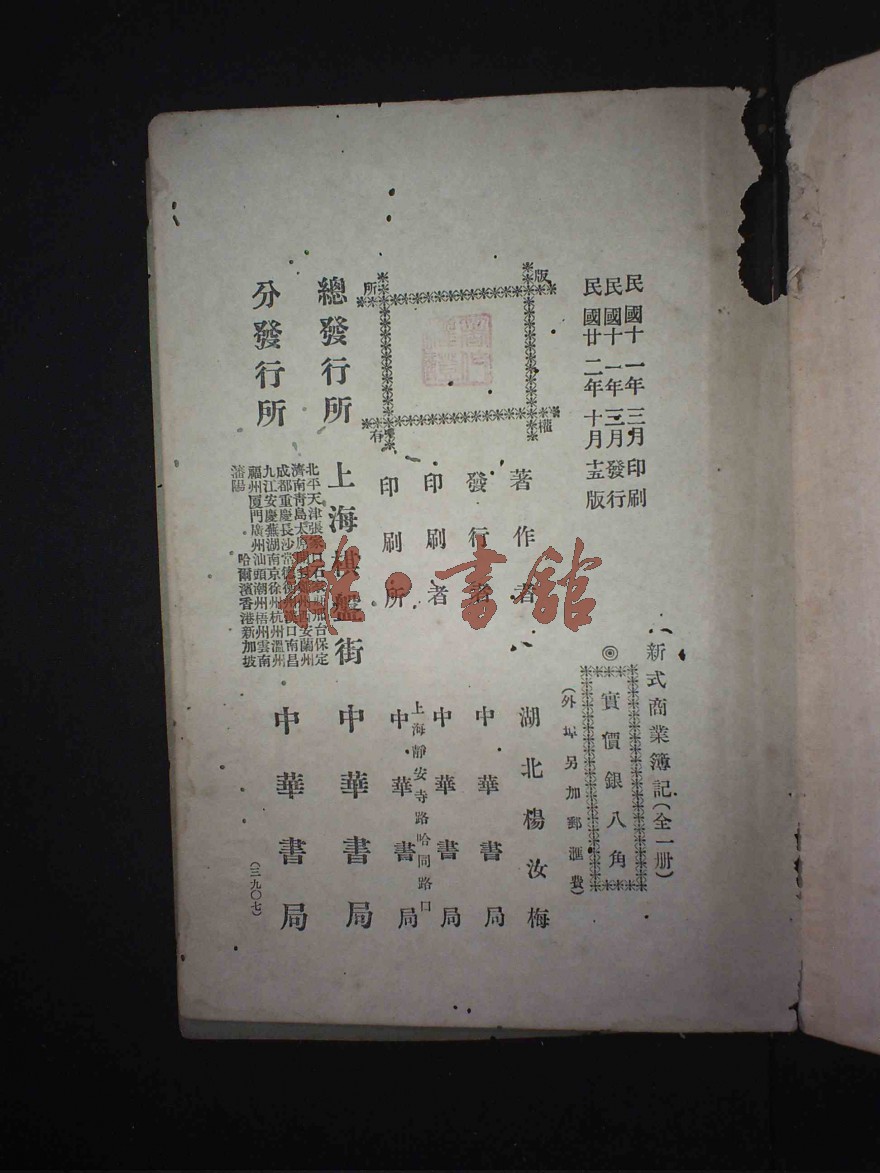 民國十一年三月印刷
民國十一年三月發行
民國廿二年十月十五版
新式商業簿記（全一册）
◎實價銀八角
（外埠另加郵滙費）
版權所有
著作者 湖北楊汝梅
發行者 中華書局
印刷者 中華書局
上海靜安寺路哈同路口
印刷所 中華書局
總發行所 上海棋盤街 中華書局
分發行所 中華書局
北平天津張家口石 邢台保定
濟南青島太原 西安蘭州
成都重慶長沙常德 漢口南昌
九江安慶蕪湖南京徐州杭州溫州
福州廈門廣州汕頭潮州梧州雲南
瀋陽 哈爾濱香港新加坡
（三九〇七）
雅·書館